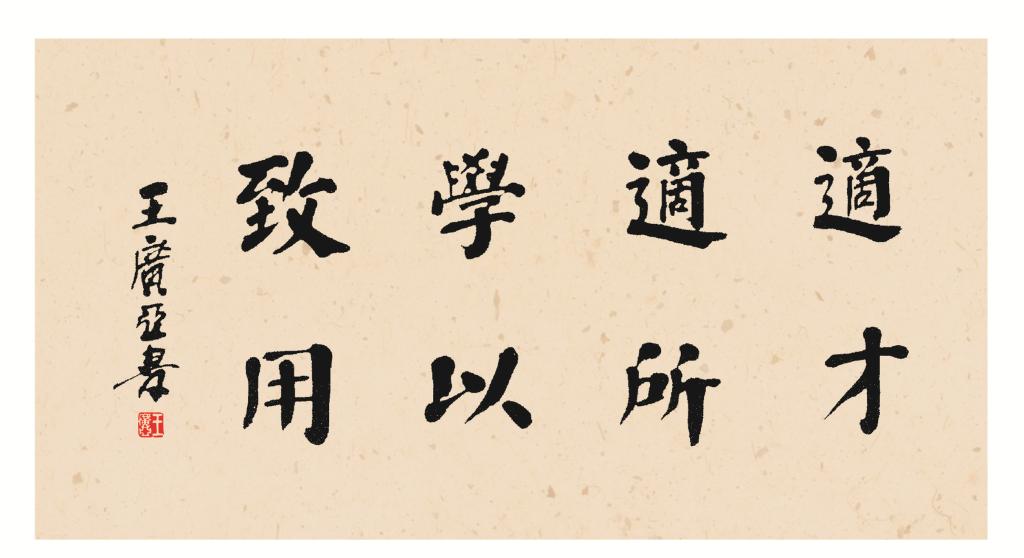 適才
適所
學以
致用
王廣亞書
王廣亞